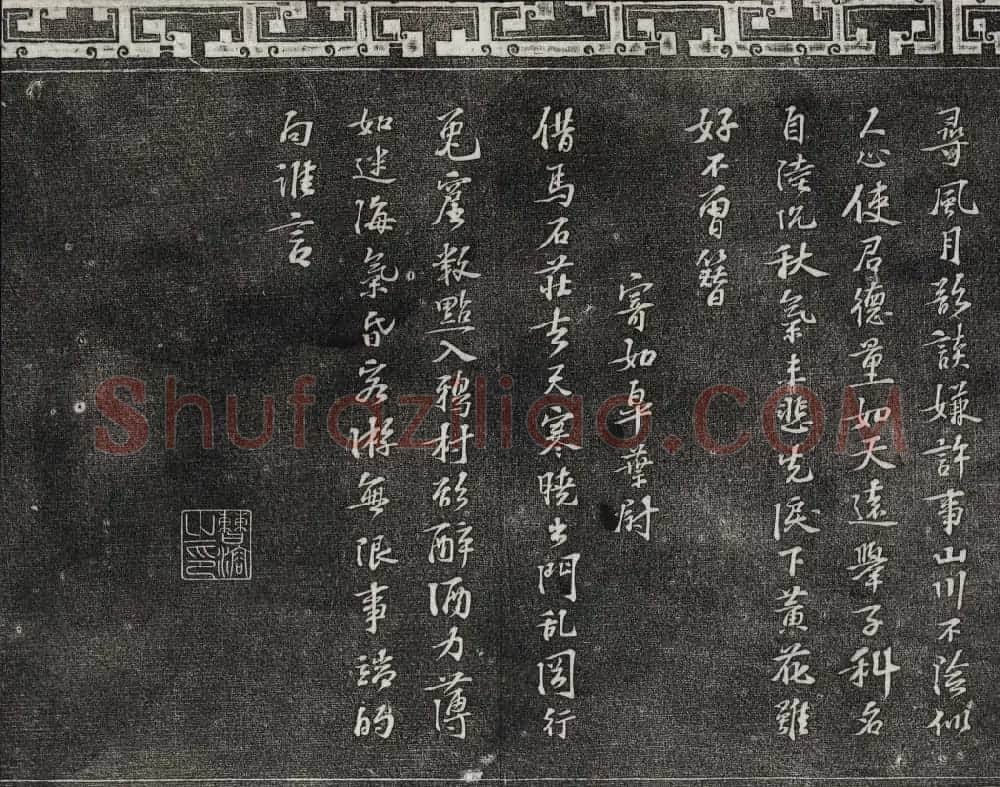 尋風月欲談嫌許事山川不險似
人心使君德量如天遠舉子科名
自陸沉秋氣主悲先淚下黃花雖
好不曾簪
寄如皋葉尉
借馬石莊去天寒曉出門乱岡行
兔窟數點入鴉村欲醉酒力薄
如迷海氣昏客游無限事端的
向誰言
Shufaziliao.COM